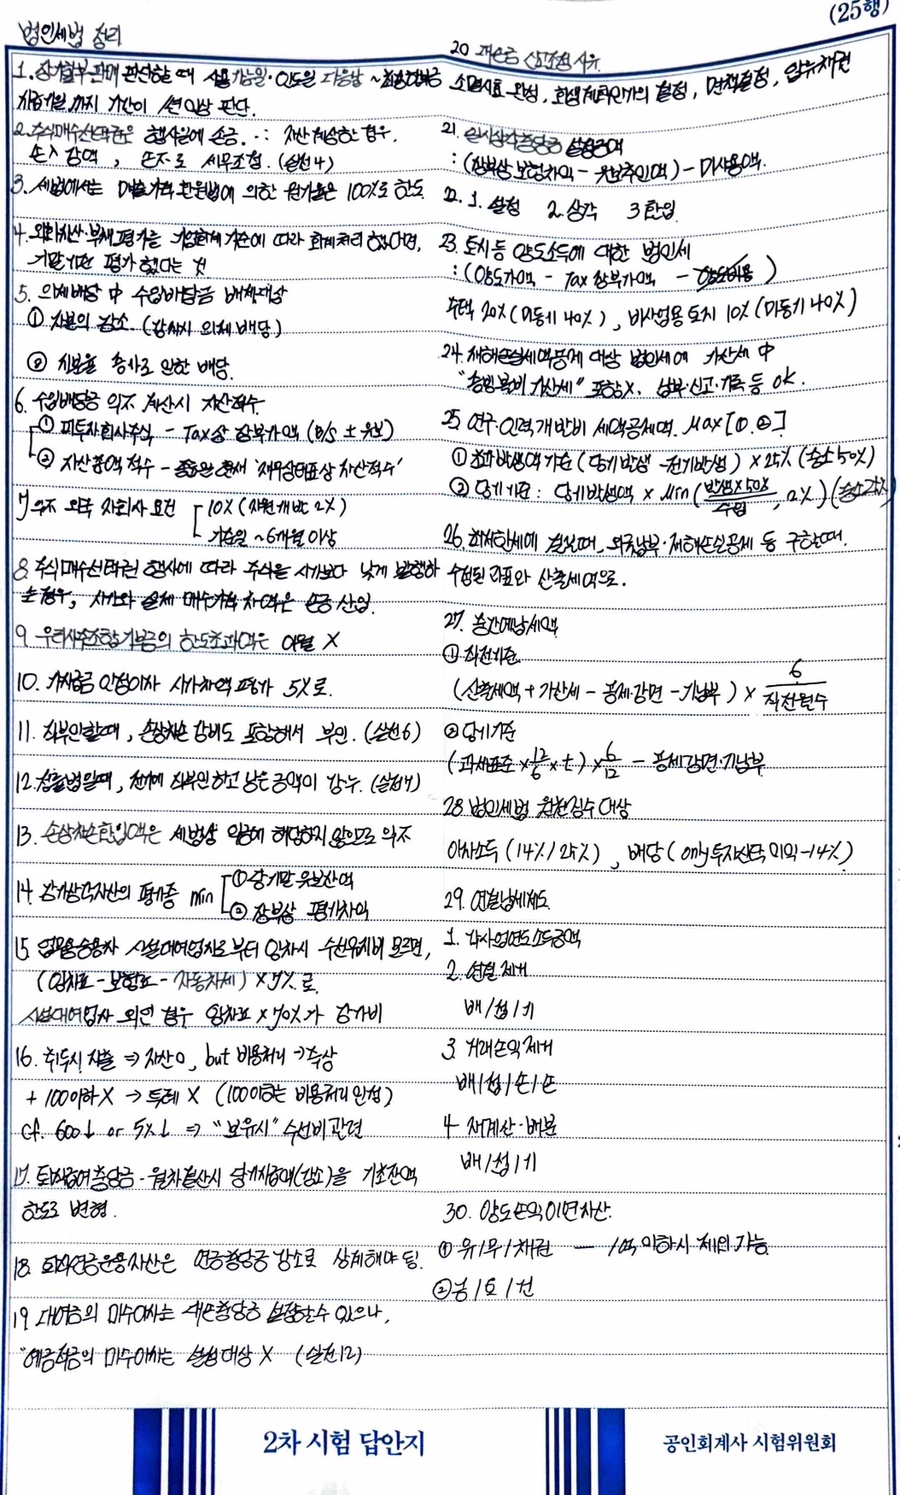 (25행)
법인세법 정리
1. 장기할부판매 판정할 때 사용가능일·인도일 다음날 ~ 최종할부금
지급기일까지 기간이 1년이상 판단.
2. 주식매수선택권은 행사일에 손금 ∴ 자산계상한 경우,
손入 감액, 손不로 세무조정. (실전4)
3. 세법에서는 매출가격환원법에 의한 원가율은 100%로 한도
4. 외화자산·부채평가는 기업회계기준에 따라 회계처리 했다면,
기말기준 평가했다는 것
5. 의제배당 中 수입배당금 배제대상
① 자본의 감소 (감자시 의제배당)
② 지분율 증가로 인한 배당.
6. 수입배당금 익不 계산시 자산적수.
① 피투자회사주식 - Tax상 장부가액 (B/S ± 유보)
② 자산총액 적수 - 재무상태표상 자산적수'
7 익不 외국 자회사 요건
10% (자원개발 2%)
기준일 ~ 6개월 이상
8. 주식매수선택권 행사에 따라 주식을 시가보다 낮게 발행하
는경우, 시가와 실제 매수가격 차액은 손금 산입.
9. 우리사주조합기부금의 한도초과액은 이월 X
10. 가지급금 인정이자 시가차액 평가 5%로.
11. 직부인할때, 손상차손 감비도 포함해서 부인. (실전6)
12. 정률법일때, 전기에 직부인하고 남은 금액이 감누. (실전7)
13. 손상차손환입액은 세법상 익금에 해당하지 않으므로 익不
14. 감가상각자산의 평가증 min
① 당기말 유보잔액
② 장부상 평가차익
15. 업무용승용차 시설대여업자로부터 임차시 수선유지비 모르면,
(임차료 - 보험료 - 자동차세) × 7%로.
시설대여업자 외인 경우 임차료 × 70%가 감가비
16. 취득시 지출 ⇒ 자산 O, but 비용처리 → 즉상
+ 100이하 X → 특례 X (100이하는 비용처리 인정)
cf. 600↓ or 5%↓ ⇒ "보유시" 수선비 관련
17. 퇴직급여충당금 - 월차결산시 당기지급액(감소)을 기초잔액
한도로 변형.
18. 퇴직연금운용자산은 연금충당금 감소로 상계해야 됨.
19 대여금의 미수이자는 대손충당금 설정할 수 있으나,
"예금적금의 미수이자는 설정대상 X (실전12)
20 대손금 신고조정사유.
소멸시효 완성, 회생계획인가의 결정, 면책결정, 압류채권
21. 일시상각충당금 설정금액
: (장부상 보험차익 - 유보추인액) - 미사용액.
22. 1. 설정 2. 상각 3 환입
23. 토지 등 양도소득에 대한 법인세
: (양도가액 - Tax 장부가액 - 양도비용 )
주택 20% (미등기 40%), 비사업용토지 10% (미등기 40%)
24. 재해손실세액공제 대상 법인세에 가산세 中
포함X. 납부·신고·기록 등 OK.
25 연구·인력개발비 세액공제액. Max [①, ②]
① 초과발생액 기준 (당기발생 - 전기발생) × 25% (중소 50%)
② 당기기준 : 당기발생액 × Min ( 발생×50% / 수입 , 2% )
26. 최저한세에 걸렸을때, 외국납부·재해손실공제 등 구할때.
수정된 과표와 산출세액으로.
27. 중간예납세액
① 직전기준
(산출세액 + 가산세 - 공제·감면 - 기납부) × 6 / 직전월수
② 당기기준
(과세표준 × 12/6 × t) × 6/12 - 공제·감면·기납부
28 법인세법 원천징수대상
이자소득 (14% / 25%), 배당 (only 투자신탁 이익 - 14%)
29. 연결납세제도
1. 각사업연도소득금액
2. 연결 제거
배 / 접 / 기
3. 거래손익제거
배 / 접 / 손 / 손
4 재계산·배분
배 / 접 / 기
30. 양도손익이연자산.
① 유 / 무 / 채권 — 1억 이하시 제외가능
② 금 / 토 / 건
2차 시험 답안지
공인회계사 시험위원회